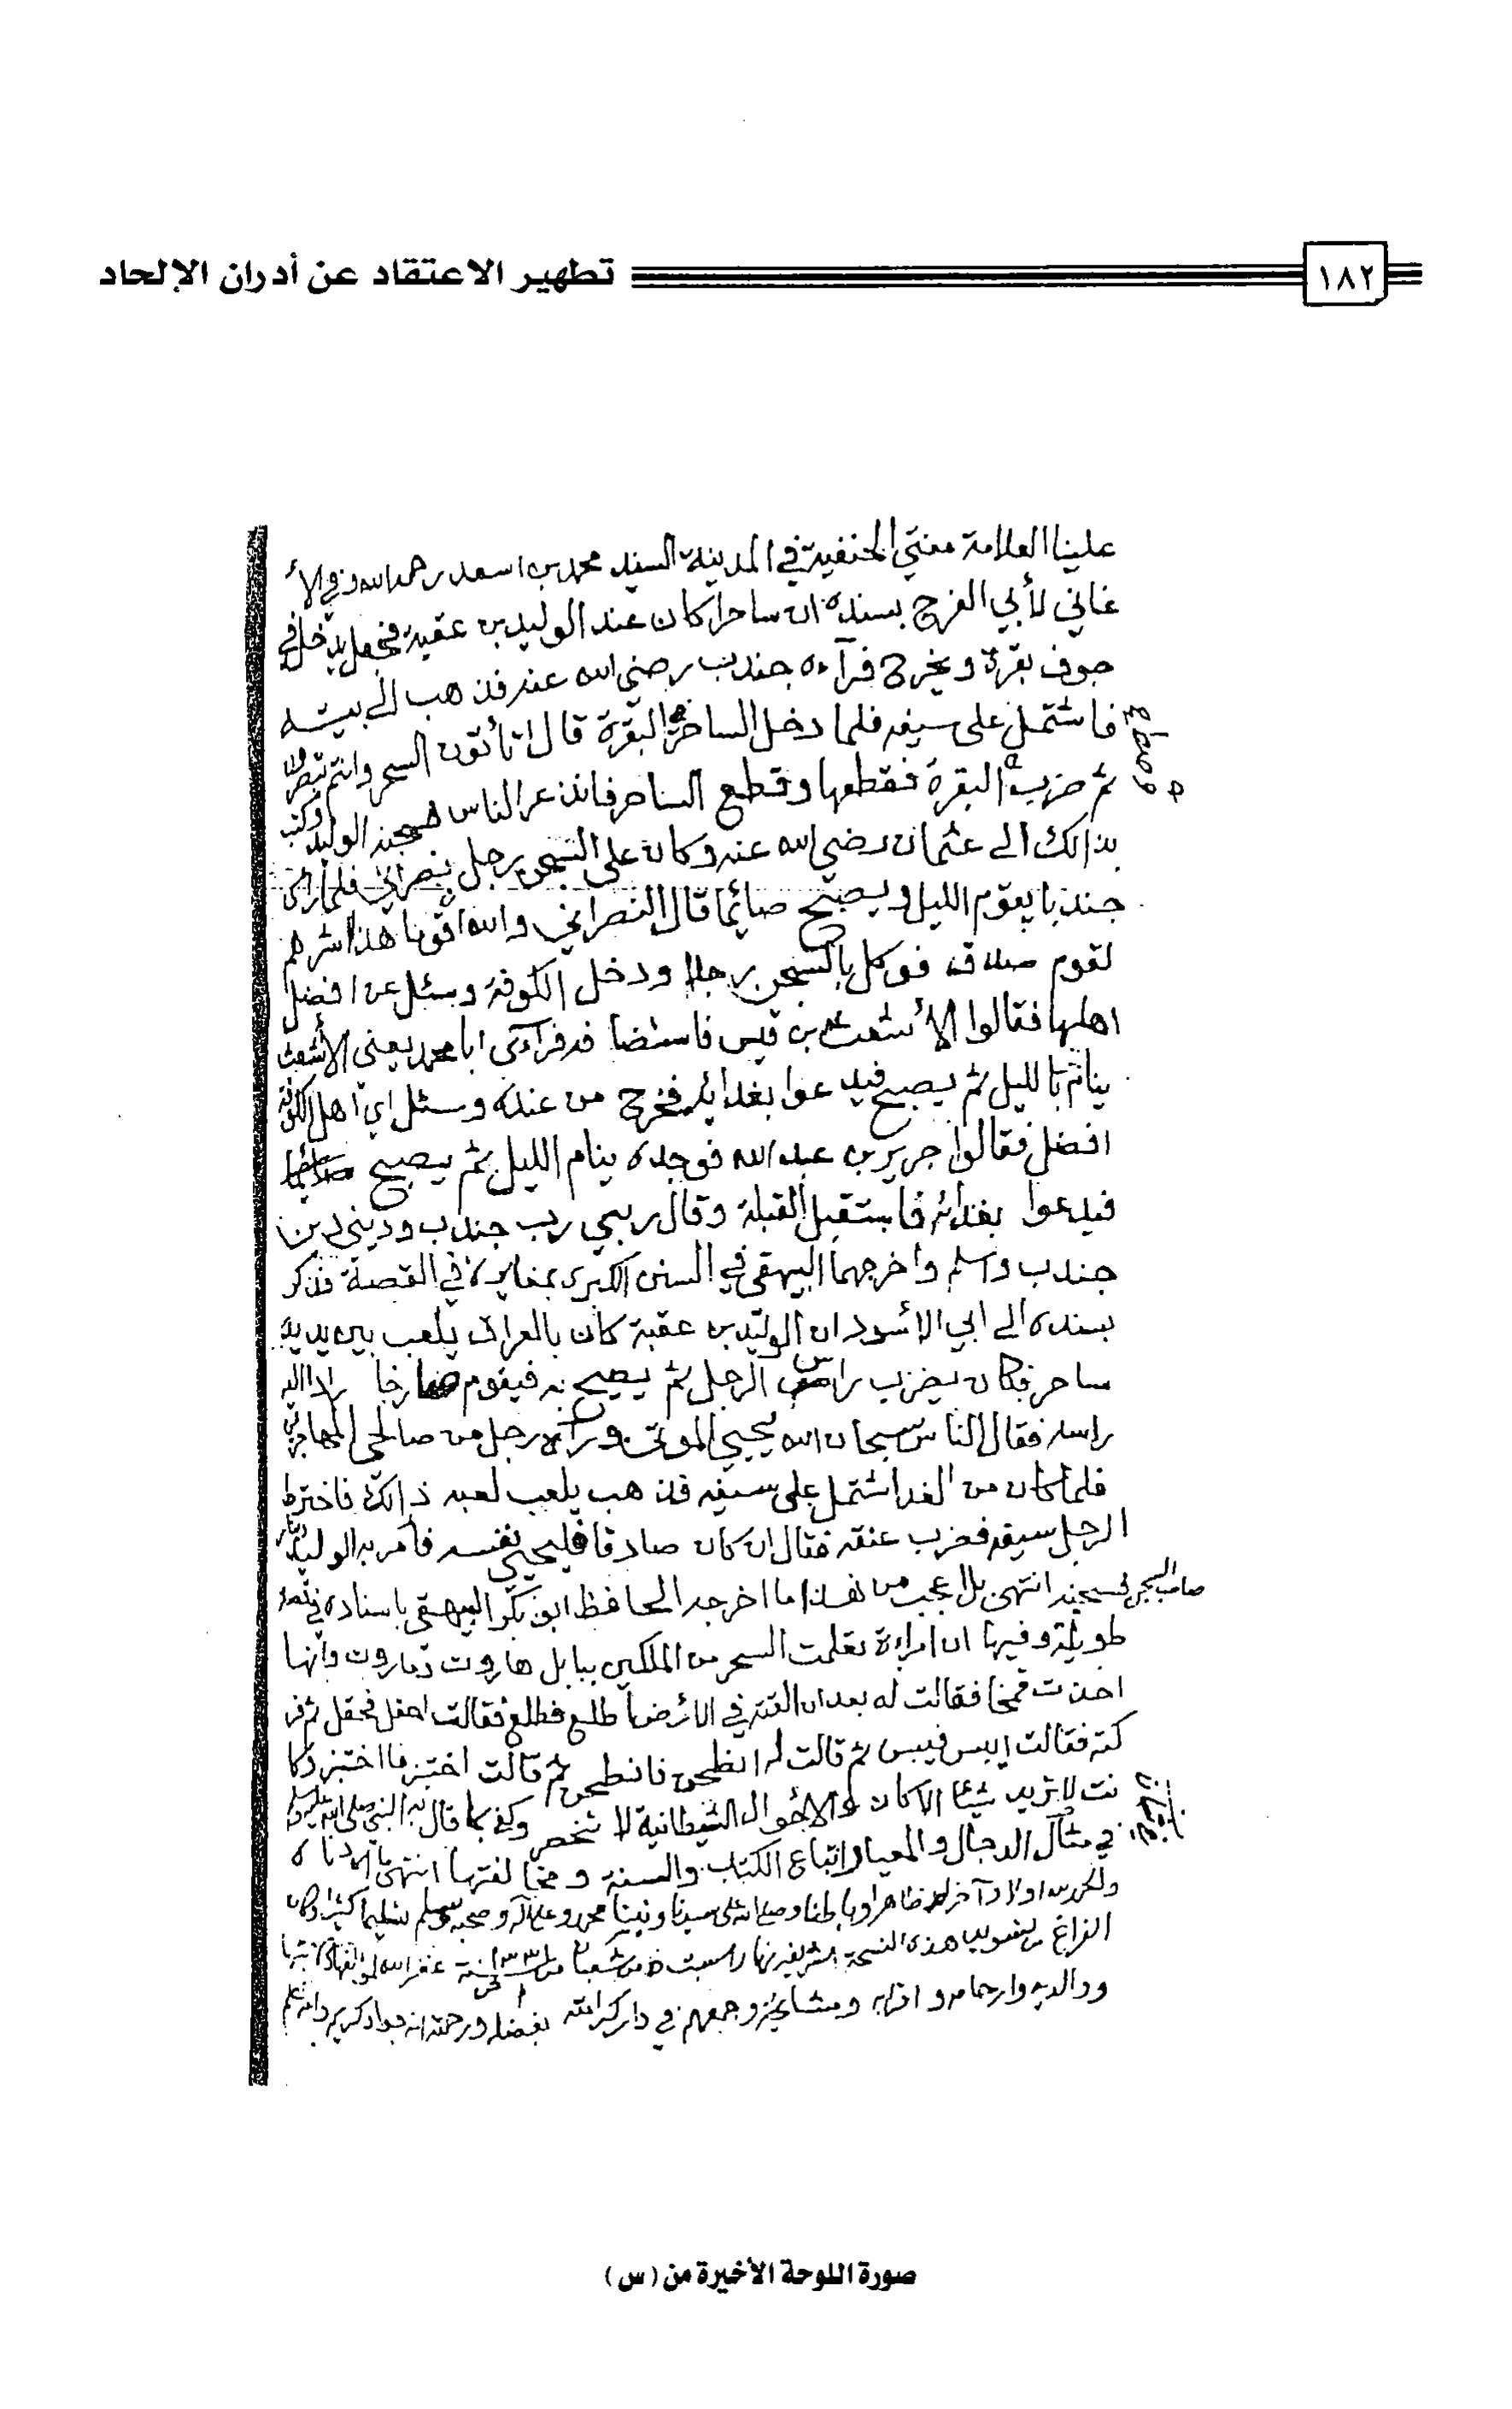 ١٨٢
تطهير الاعتقاد عن أدران الإلحاد
علينا العلامة مفتي الحنفية في المدينة السيد محمد بن اسعد رحمه الله وفي الأ
غاني لأبي الفرج بسنده ان ساحرا كان عند الوليد بن عقبة فجعل يدخل في
جوف بقرة ويخرج فرآءه جندب رضي الله عنه فذهب الى بيته
فاشتمل على سيفه فلما دخل الساحر البقرة قال اتأتون السحر وانتم تبصرون
ثم ضرب البقرة فقطعها وقطع الساحر فانذعر الناس فسجنه الوليد وكتب
بذالك الى عثمان رضي الله عنه وكان على السجن رجل نصراني فلما رأى
جندبا يقوم الليل ويصبح صائما قال النصراني والله ان قوما هذا شرهم
لقوم صدق فوكل بالسجن رجلا ودخل الكوفة وسئل عن افضل
اهلها فقالوا الأشعث بن قيس فاستضا فه فرآءى ابا محمد يعنى الأشعث
ينام بالليل ثم يصبح فيدعوا بغدائه فخرج من عنده وسئل اي اهل الكوفة
افضل فقالوا جرير بن عبد الله فوجده ينام الليل ثم يصبح
فيدعوا بغدائه فاستقبل القبلة وقال ربي رب جندب وديني دين
جندب واسلم واخرجها البيهقي في السنن الكبرى بمغايرة في القصة فذكر
بسنده الى ابي الأسود ان الوليد بن عقبة كان بالعراق يلعب بين يديه
ساحر فكان يضرب راس الرجل ثم يصيح به فيقوم صارخا اليه
راسه فقال الناس سبحان الله يحيي الموتى ورآه رجل من صالحي المهاجرين
فلما كان من الغد اشتمل على سيفه فذهب يلعب لعبه ذالك فاخترط
الرجل سيفه فضرب عنقه فقال ان كان صادقا فليحيي نفسه فأمر به الوليد
صاحب السجن فسجنه انتهى بل اعجب من هذا ما اخرجه الحافظ ابو بكر البيهقي باسناده في قصة
طويلة وفيها ان امراءة تعلمت السحر من الملكين ببابل هاروت وماروت وانها
اخذت قمحا فقالت له بعد ان القته في الأرض اطلع فطلع فقالت احقل فحقل ثم
كته فقالت ايبس فيبس ثم قالت له انطحن فانطحن ثم قالت اختبز فااختبز وكا
نت لا تريد شيئا الا كان والأحوال الشيطانية لا تنحصر وكفى بما قال به النبي صلى الله عليه وسلم
في الدجال والمعيار اتباع الكتاب والسنة ومخالفتها انتهى ما اردناه
والحمد لله اولا وآخرا ظاهرا وباطنا وصلى الله على سيدنا ونبينا محمد وعلى آله وصحبه وسلم تسليما كثيرا وكان
الفراغ من هذه النسخة الشريفة نهار السبت من شعبان غفر الله
ووالديه وارحامه و ومشايخه وجمعهم في دار كرامته بفضله ورحمته انه جواد كريم
صورة اللوحة الأخيرة من (س)